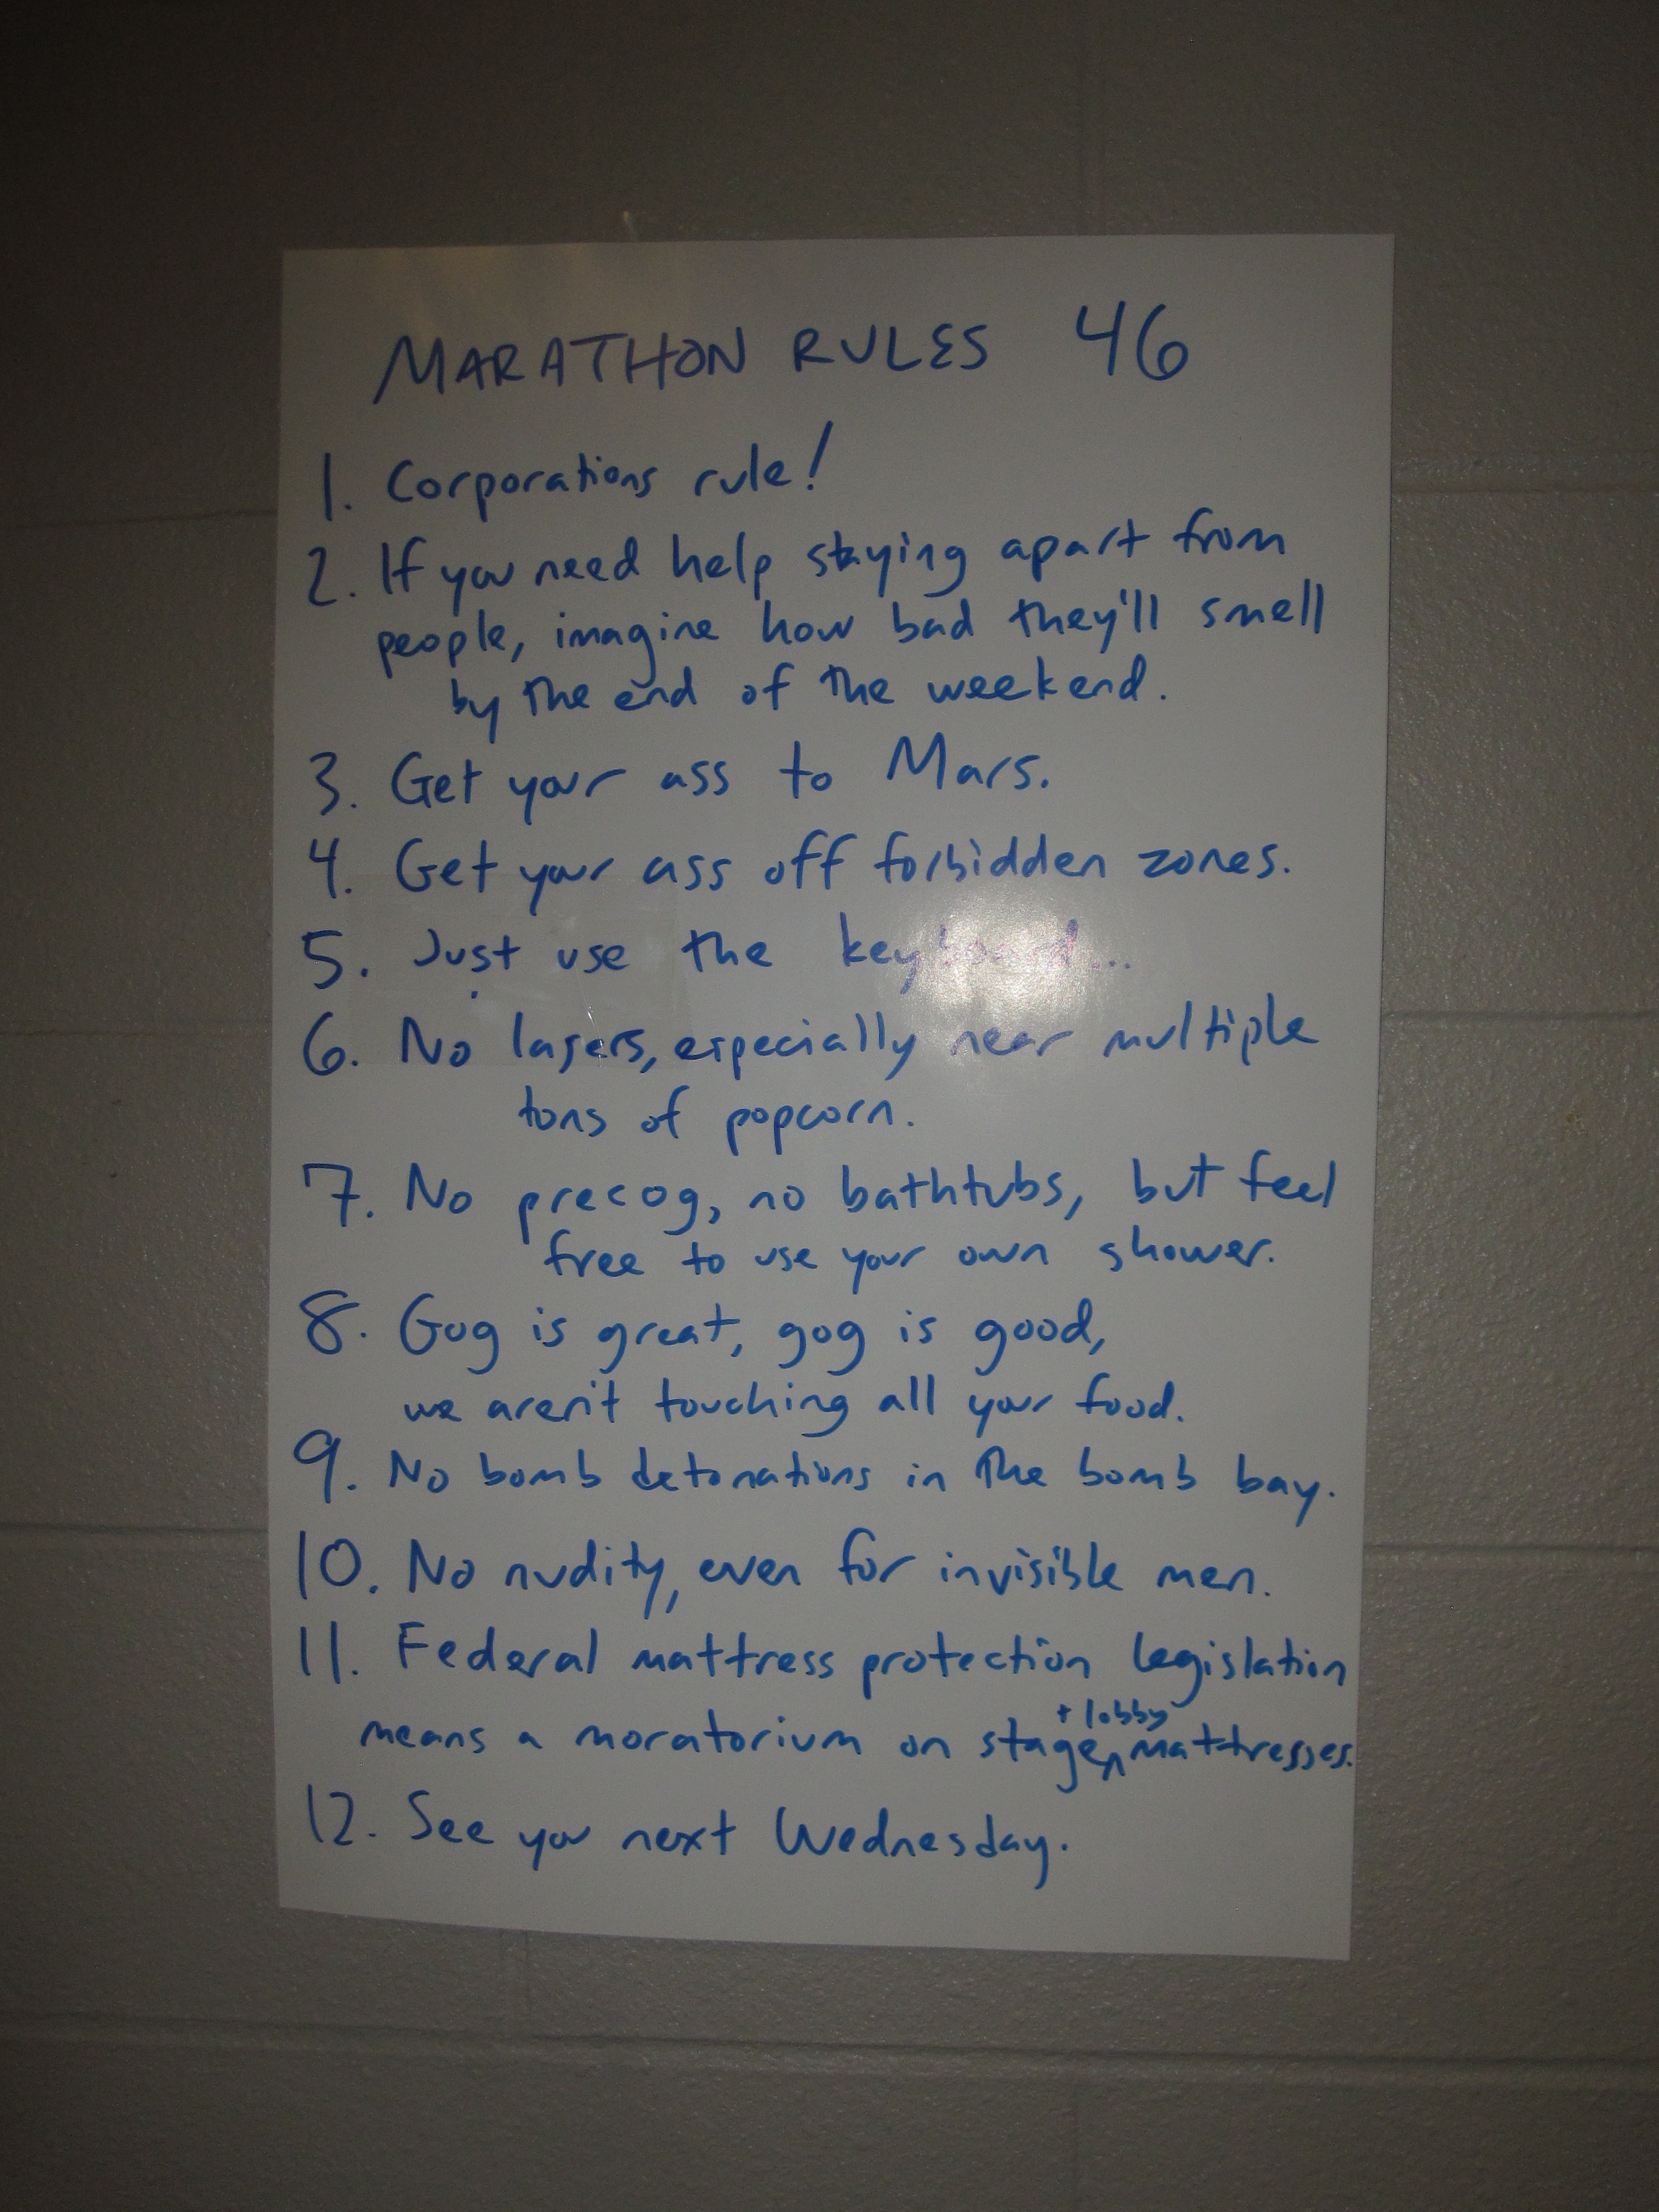 MARATHON RULES 46
1. Corporations rule!
2. If you need help staying apart from
people, imagine how bad they'll smell
by the end of the weekend.
3. Get your ass to Mars.
4. Get your ass off forbidden zones.
5. Just use the keyboard...
6. No lasers, especially near multiple
tons of popcorn.
7. No precog, no bathtubs, but feel
free to use your own shower.
8. Gog is great, gog is good,
we aren't touching all your food.
9. No bomb detonations in the bomb bay.
10. No nudity, even for invisible men.
11. Federal mattress protection legislation
+ lobby
means a moratorium on stage mattresses.
12. See you next Wednesday.